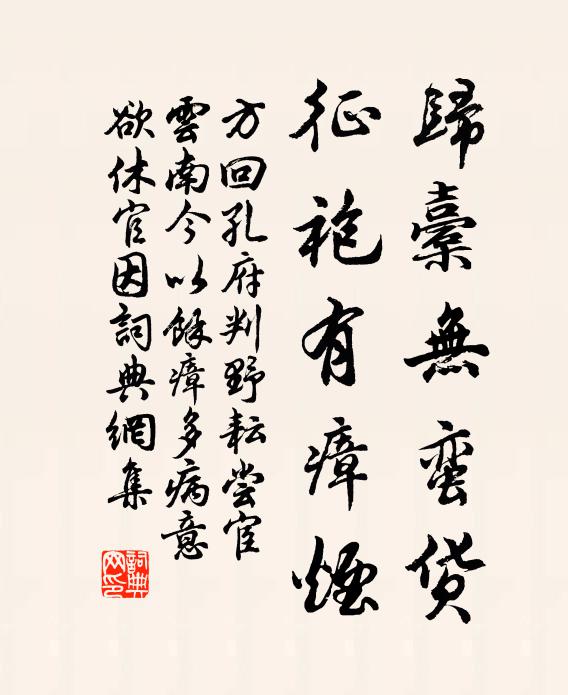 歸橐無蛮货
征袍有瘴煙
方回孔府判野耘尝宦
雲南今以馀瘴多病意
欲休官因詞典網集
詞典网印